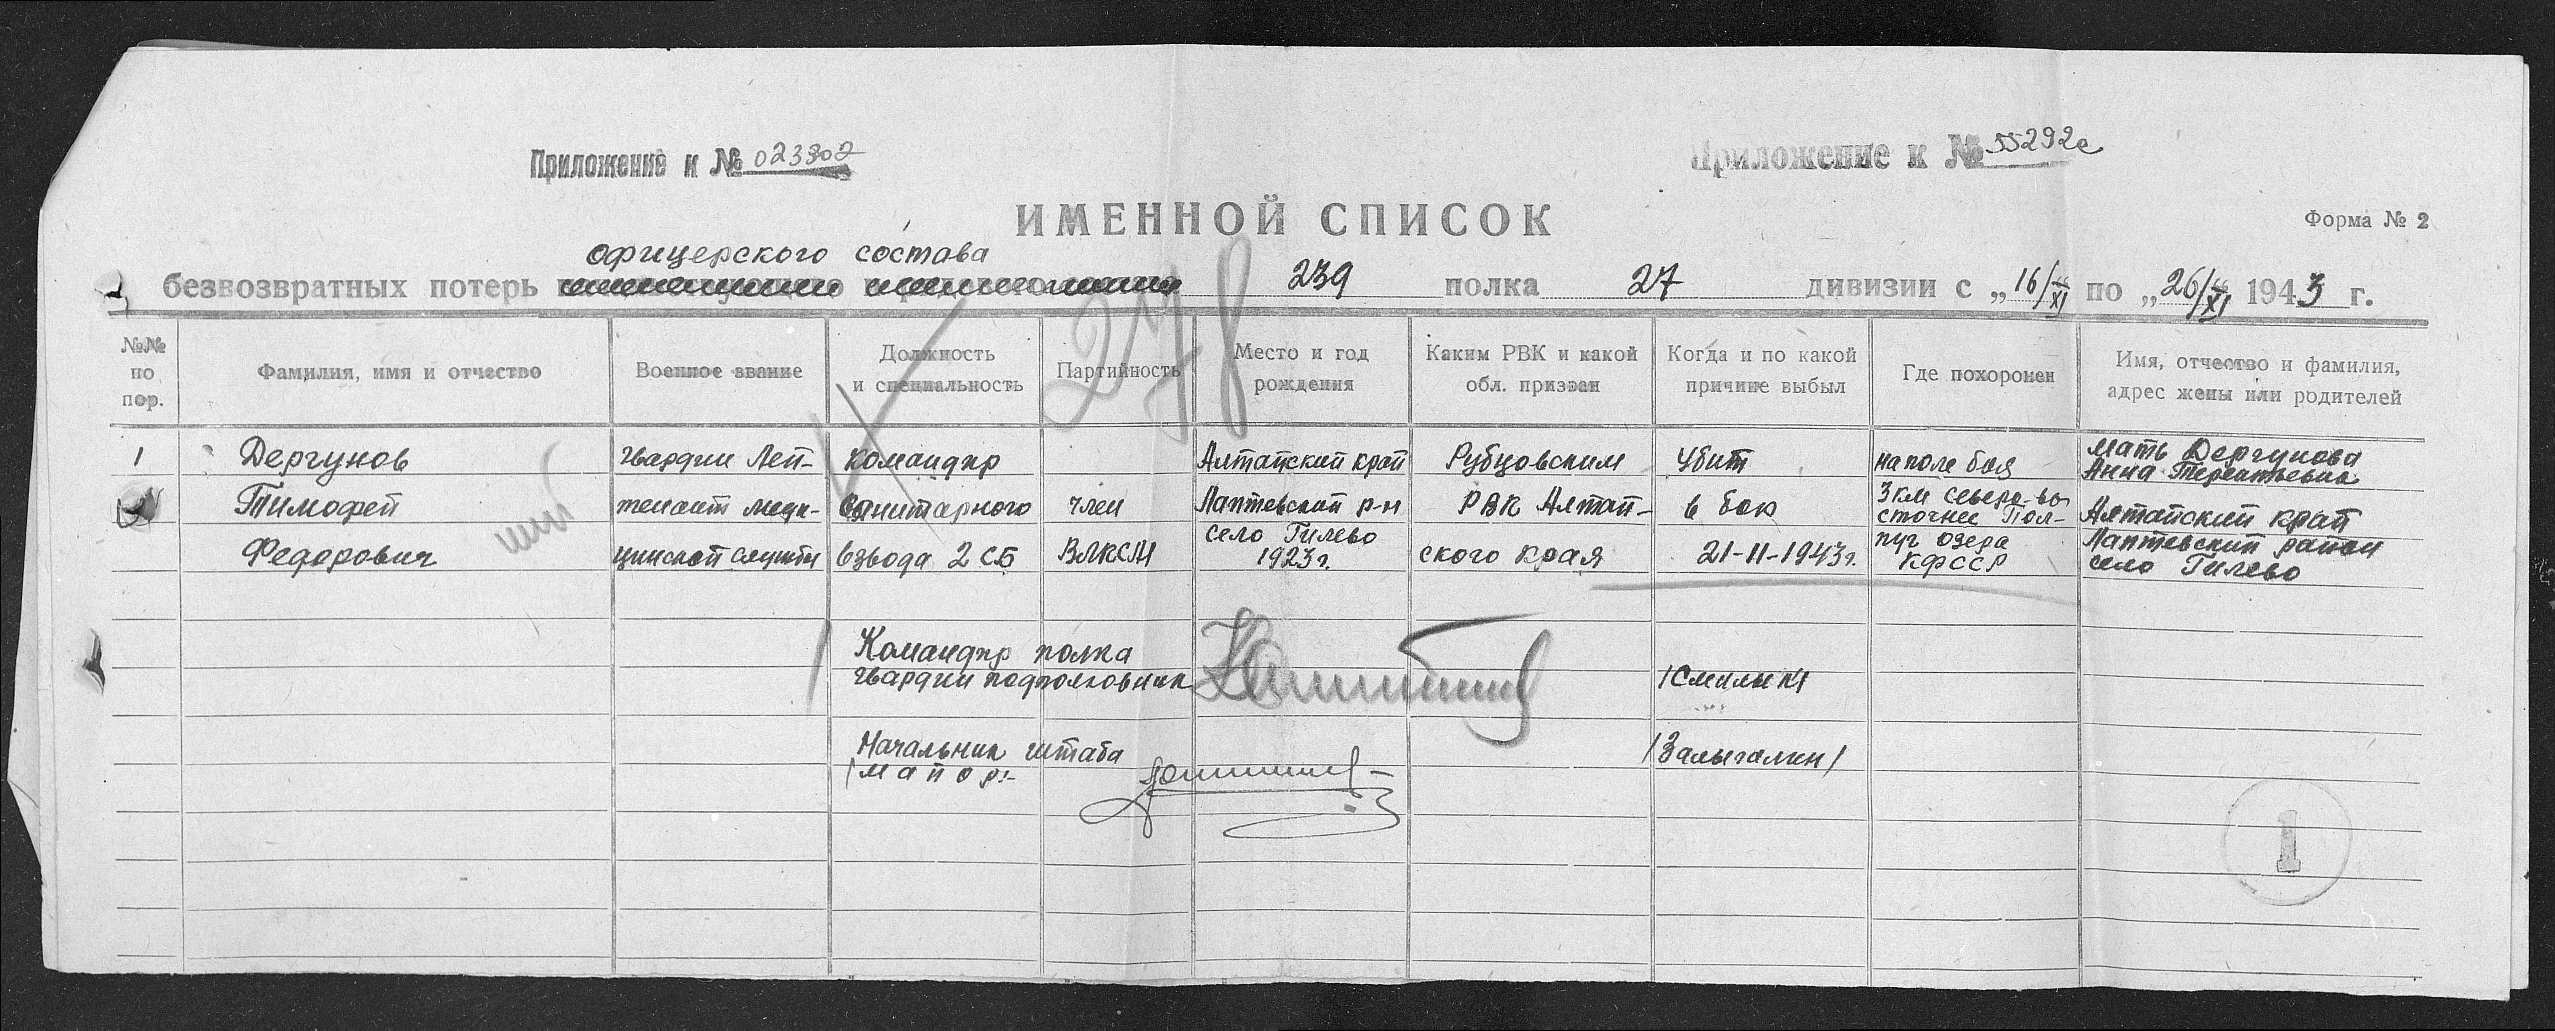 Приложение к № 023302
Приложение к № 55292с
ИМЕННОЙ СПИСОК
Форма № 2
офицерского состава
безвозвратных потерь 239 полка 27 дивизии с „16/XI по „26/XI 1943 г.
№№ по пор.
Фамилия, имя и отчество
Военное звание
Должность и специальность
Партийность
Место и год рождения
Каким РВК и какой обл. призван
Когда и по какой причине выбыл
Где похоронен
Имя, отчество и фамилия, адрес жены или родителей
1
Дергунов
Тимофей
Федорович
гвардии Лей-
тенант меди-
цинской службы
командир
санитарного
взвода 2 СБ
член
ВЛКСМ
Алтайский край
Лаптевский р-н
село Гилево
1923г.
Рубцовским
РВК Алтай-
ского края
Убит
в бою
21-11-1943г.
на поле боя
3 км северо-во-
сточнее Пол-
озера
КФССР
Мать Дергунова
Анна Терентьевна
Алтайский край
Лаптевский район
село Гилево
278
Командир полка
гвардии подполковник
/Смилык/
Начальник штаба
/майор:-
/Залыгалин/
1